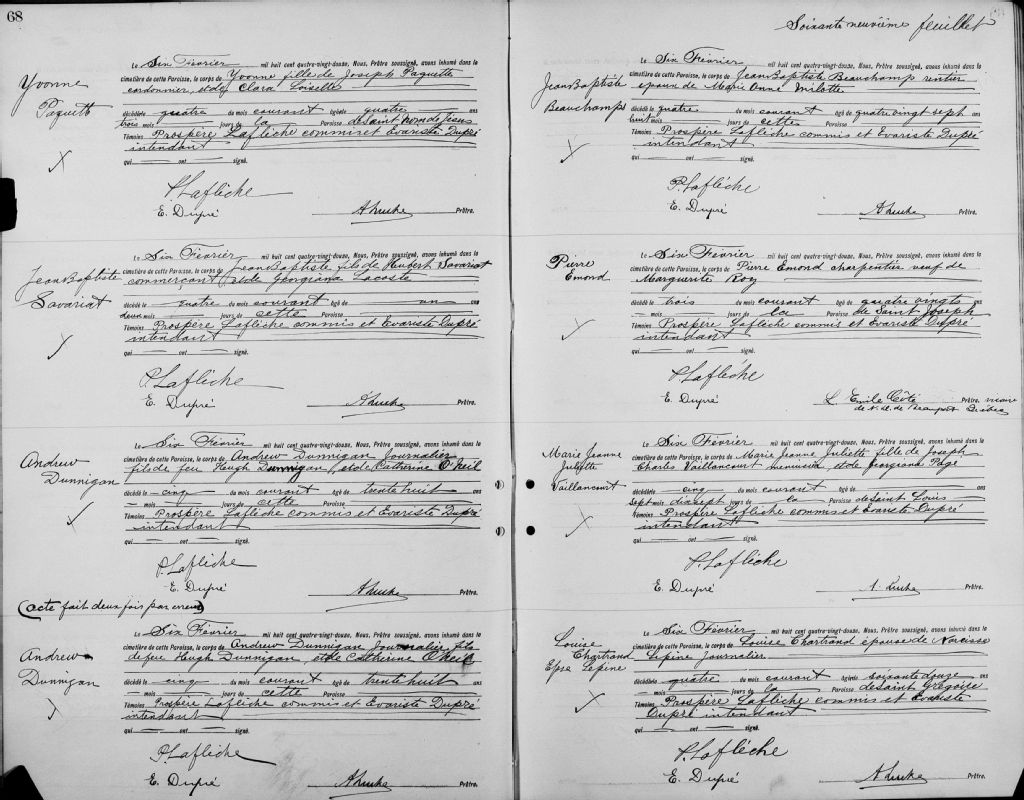 68
Yvonne
Paquett
Le Six Février mil huit cent quatre-vingt-douze, Nous, Prêtre soussigné, avons inhumé dans le
cimetière de cette Paroisse, le corps de Yvonne fille de Joseph Paquette
cordonnier, et de Clara Loisette
décédée quatre du mois courant âgée de quatre ans
trois mois — jours de la Paroisse de Saint nom de Jesus
Témoins Prospère Laflèche commis et Evariste Dupré
intendant
qui — ont — signé.
P. Laflèche
E. Dupré Prêtre.
Jean Baptiste
Savariat
Le Six Février mil huit cent quatre-vingt-douze, Nous, Prêtre soussigné, avons inhumé dans le
cimetière de cette Paroisse, le corps de Jean Baptiste fils de Hubert Savariat
commercant et de Georgiana Lacoste
décédé le quatre du mois courant âgé de un ans
deux mois — jours de cette Paroisse —
Témoins Prospère Laflèche commis et Evariste Dupré
intendant
qui — ont — signé.
P. Laflèche
E. Dupré
Andrew
Dunnigan
Le Six Février mil huit cent quatre-vingt-douze, Nous, Prêtre soussigné, avons inhumé dans le
cimetière de cette Paroisse, le corps de Andrew Dunnigan Journalier
fils de feu Hugh Dunnigan, et de Catherine O'Neil
décédé le cinq du mois courant âgé de trente huit ans
— mois — jours de cette Paroisse
Témoins Prospère Laflèche commis et Evariste Dupré
intendant
qui — ont — signé.
P. Laflèche
E. Dupré Prêtre.
(acte fait deux fois par erreur)
Andrew
Dunnigan
Le Six Février mil huit cent quatre-vingt-douze, Nous, Prêtre soussigné, avons inhumé dans le
cimetière de cette Paroisse, le corps de Andrew Dunnigan Journalier fils
de feu Hugh Dunnigan, et de Catherine O'Neil
décédé le cinq du mois courant âgé de trente huit ans
— mois — jours de cette Paroisse
Témoins Prospère Laflèche commis et Evariste Dupré
intendant
qui — ont — signé.
P. Laflèche
E. Dupré Prêtre.
Soixante neuvième feuillet
Jean Baptiste
Beauchamps
Le Six Février mil huit cent quatre-vingt-douze, Nous, Prêtre soussigné, avons inhumé dans le
cimetière de cette Paroisse, le corps de Jean Baptiste Beauchamp rentier
époux de Marie Anne Milotte
décédé le quatre du mois courant âgé de quatre vingt sept ans
huit mois — jours de cette Paroisse
Témoins Prospère Laflèche commis et Evariste Dupré
intendant
qui — ont — signé.
P. Laflèche
E. Dupré Prêtre.
Pierre
Emond
Le Six Février mil huit cent quatre-vingt-douze, Nous, Prêtre soussigné, avons inhumé dans le
cimetière de cette Paroisse, le corps de Pierre Emond charpentier veuf de
Marguerite Roy
décédé le trois du mois courant âgé de quatre vingts ans
— mois — jours de la Paroisse de Saint Joseph
Témoins Prospère Laflèche commis et Evariste Dupré
intendant
qui — ont — signé.
P. Laflèche
E. Dupré L. Emile Côté Prêtre. vicaire
de N. D. de Beauport Québec
Marie Jeanne
Juliette
Vaillancourt
Le Six Février mil huit cent quatre-vingt-douze, Nous, Prêtre soussigné, avons inhumé dans le
cimetière de cette Paroisse, le corps de Marie Jeanne Juliette fille de Joseph
Charles Vaillancourt menuisier et de Georgiana Pagé
décédée le cinq du mois courant âgé de — ans
sept mois dix sept jours de la Paroisse de Saint Louis
Témoins Prospère Laflèche commis et Evariste Dupré
intendant
qui — ont — signé.
P. Laflèche
E. Dupré Prêtre.
Louise
Chartrand
Epse Lepine
Le Six Février mil huit cent quatre-vingt-douze, Nous, Prêtre soussigné, avons inhumé dans le
cimetière de cette Paroisse, le corps de Louise Chartrand épouse de Narcisse
Lepine Journalier
décédée quatre du mois courant âgée de soixante douze ans
— mois — jours de la Paroisse de Saint Grégoire
Témoins Prospère Laflèche commis et Evariste
Dupré intendant
qui — ont — signé.
P. Laflèche
E. Dupré Prêtre.